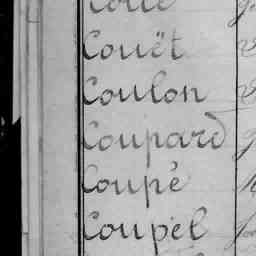 Couët
Coulon
Coupard
Coupé
Coupel